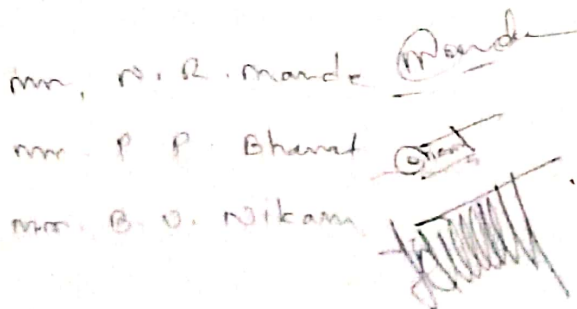 mr. N. R. Mande Mande
mr. P P. Bharat
mr. B. V. Nikam